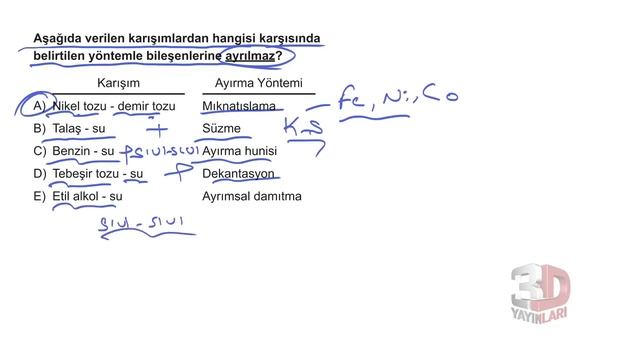 Aşağıda verilen karışımlardan hangisi karşısında
belirtilen yöntemle bileşenlerine ayrılmaz?
Karışım Ayırma Yöntemi
A) Nikel tozu - demir tozu Mıknatıslama Fe, Ni, Co
B) Talaş - su + Süzme K-S
C) Benzin - su sıvı-sıvı Ayırma hunisi
D) Tebeşir tozu - su Dekantasyon
E) Etil alkol - su Ayrımsal damıtma
sıvı - sıvı
3D
YAYINLARI